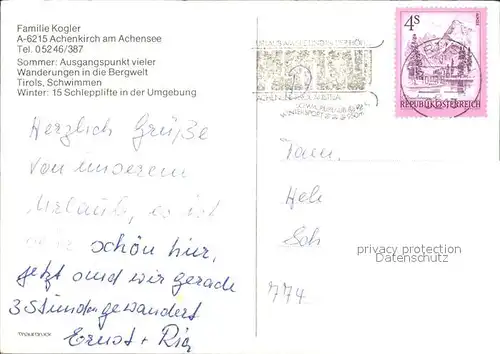 Familie Kogler
A-6215 Achenkirch am Achensee
Tel. 05246/387
Sommer: Ausgangspunkt vieler
Wanderungen in die Bergwelt
Tirols, Schwimmen
Winter: 15 Schlepplifte in der Umgebung
4S
REPUBLIK ÖSTERREICH
Herzlich Grüße
von unserem
Urlaub, es ist
sehr schön hier,
jetzt sind wir gerade
3 Stunden gewandert
Ernst +
Fam.
privacy protection
Datenschutz